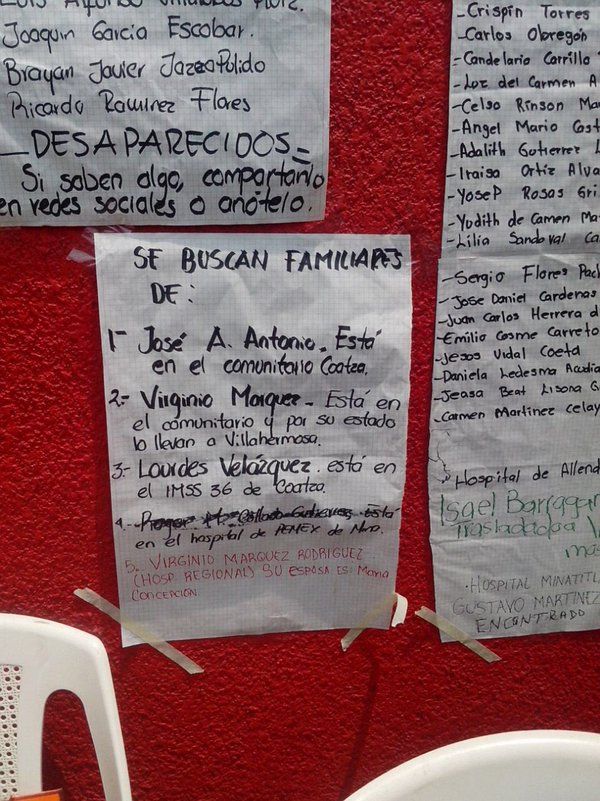 Joaquin Garcia Escobar.
Brayan Javier Jazzo Pulido
Ricardo Ramirez Flores
DESAPARECIDOS
Si saben algo, compartanlo
en redes sociales o anótelo.
SE BUSCAN FAMILIARES
DE:
1- José A. Antonio. Está
en el comunitario Coatza.
2.- Virginio Marquez. Está en
el comunitario y por su estado
lo llevan a Villahermosa.
3- Lourdes Velázquez. está en
el IMSS 36 de Coatza.
4.- Está
en el hospital de PEMEX de
5. VIRGINIO MARQUEZ RODRIGUEZ
(HOSP. REGIONAL) SU ESPOSA ES: Maria
CONCEPCIÓN.
-Crispín Torres
-Carlos Obregón
-Candelario Carrillo
-Luz del Carmen A
-Celso Rinson Ma
-Angel Mario Cost
-Adalith Gutierrez L
-Iraisa Ortiz Alva
-Yosep Rosas Gri
-Yudith de Carmen Ma
-Lilia Sandoval Ca
-Sergio Flores Pach
-Jose Daniel Cardenas
-Juan Carlos Herrera d
-Emilio Cosme Carreto
-Jesus Vidal Coeta
-Daniela Ledesma Acudia
-Jeasa Beat Lisona G
-Carmen Martinez Celay
Hospital de Allend
Isael Barragan
Trasladado a
mas
·HOSPITAL MINATITL
GUSTAVO MARTINEZ
ENCONTRADO